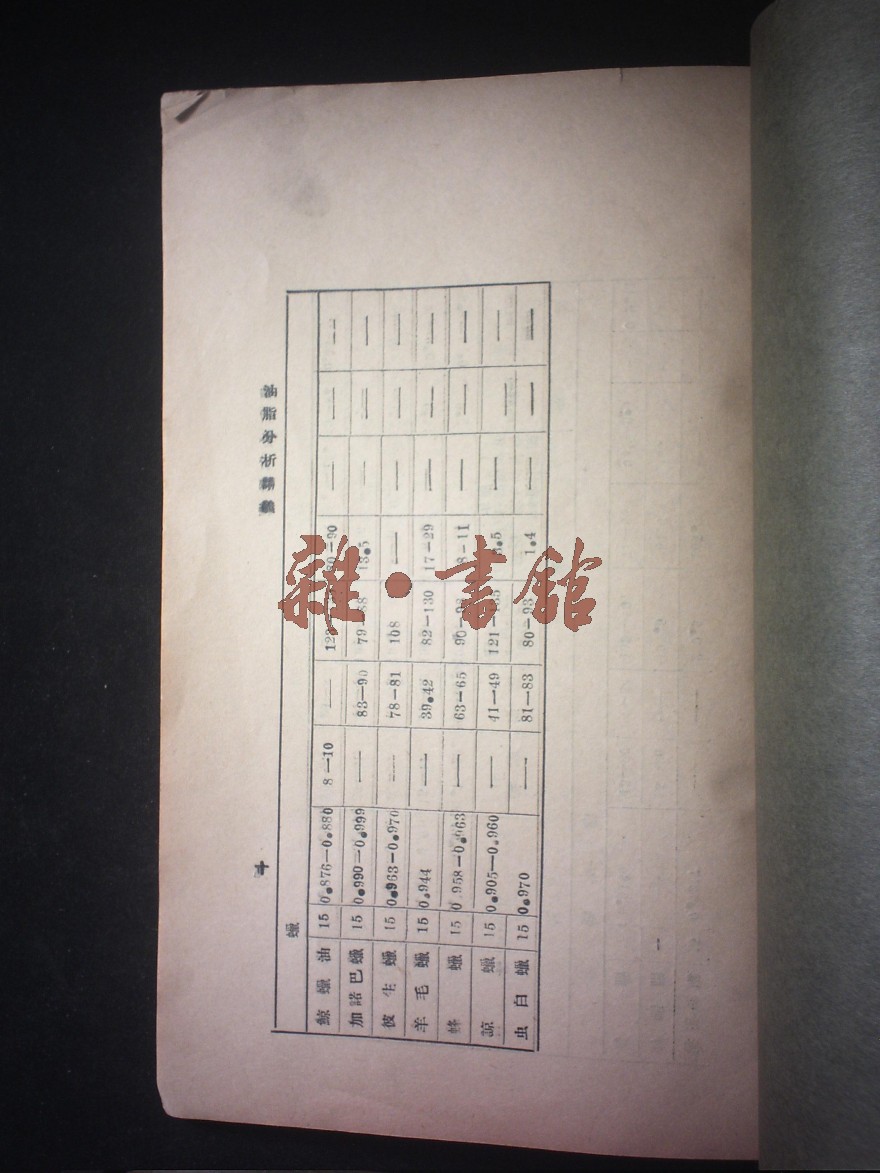 油脂分析
十
蠟
鯨蠟油 15 0.876—0.880 8—10 —
加諾巴蠟 15 0.990—0.999 — 83—90
彼生蠟 15 0.963—0.970 — 78—81 108 — — — —
羊毛蠟 15 0.944 — 39.42 82—130 17—29 — — —
蜂蠟 15 0.958—0.963 — 63—65
蠟 15 0.905—0.960 — 41—49
虫白蠟 15 0.970 — 81—83 80—93 1.4 — — —
雜·書館